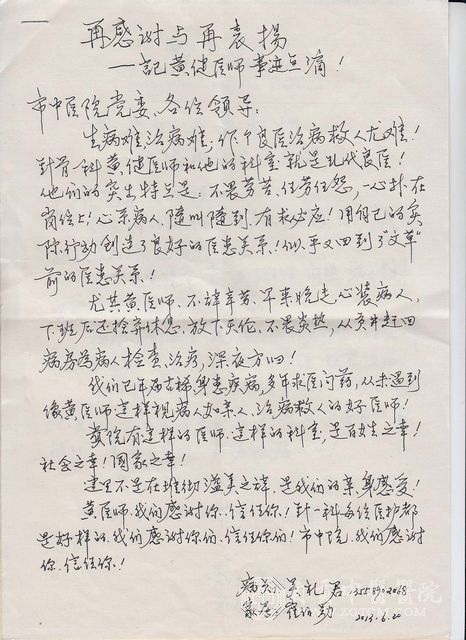 再感谢与再表扬
—記黄健医师事迹点滴！
市中医院党委、各位领导：
生病难治病难，作个良医治病救人尤难！
针骨一科黄健医师和他的科室就是现代良医！
他们的突出特点是：不畏劳苦、任劳任怨，一心扑在
岗位上！心系病人，随叫随到，有求必应！用自己的实
际行动创造了良好的医患关系！似乎又回到了"文革"
前的医患关系！
尤其黄医师、不辞辛苦、早来晚走、心装病人，
下班后还捨弃休息，放下天伦、不畏炎热，从家中赶回
病房为病人检查、治疗，深夜方归！
我们已年届古稀，身患疾病，多年求医问药，从未遇到
像黄医师这样视病人如亲人、治病救人的好医师！
贵院有这样的医师、这样的科室，是百姓之幸！
社会之幸！国家之幸！
这里不是在堆彻溢美之辞，是我们的亲身感受！
黄医师、我们感谢你、信任你！针一科每位医护都
是好样的、我们感谢你们、信任你们！市中院、我们感谢
你、信任你！
病员：吴礼君 13558902068
家属：崔
2013.6.20
中醫醫院
ZGTCM.COM